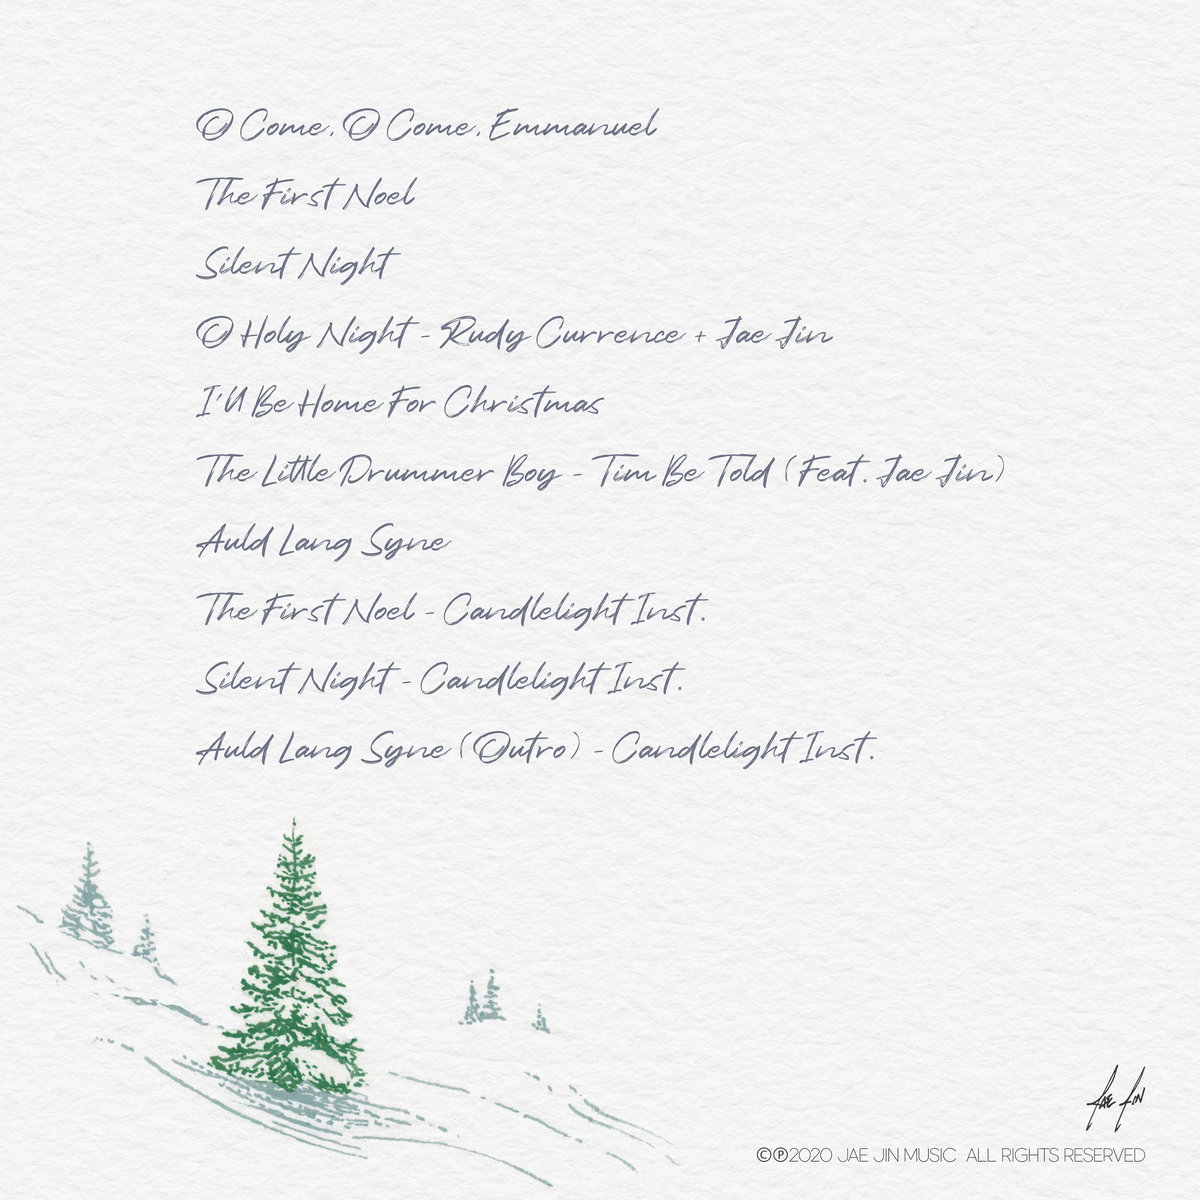 O Come, O Come, Emmanuel
The First Noel
Silent Night
O Holy Night - Rudy Currence + Jae Jin
I'll Be Home For Christmas
The Little Drummer Boy - Tim Be Told (Feat. Jae Jin)
Auld Lang Syne
The First Noel - Candlelight Inst.
Silent Night - Candlelight Inst.
Auld Lang Syne (Outro) - Candlelight Inst.
JAE JIN
©℗2020 JAE JIN MUSIC ALL RIGHTS RESERVED